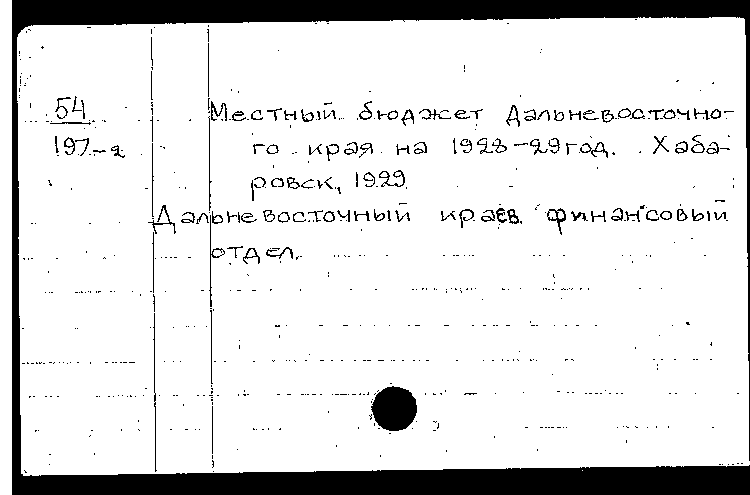 54
197-2
Местный бюджет Дальневосточно-
го края на 1928-29 год. Хаба-
ровск, 1929.
Дальневосточный краев. финансовый
отдел.